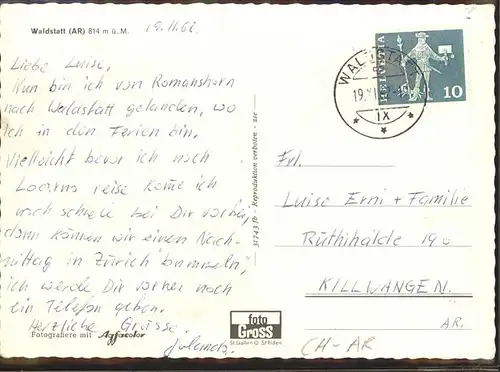 Waldstatt (AR) 814 m ü. M.
19.11.62
Liebe Luise.
Nun bin ich von Romanshorn
nach Waldstatt gelanden, wo
ich in den Ferien bin.
Vielleicht bevor ich nach
Locarno reise kome ich
noch schnell bei Dir vorbei,
dann können wir einen Nach-
mittag in Zürich "bummeln",
ich werde Dir vorher noch
ein Telefon geben.
Herzliche Grüsse.
Jolanda.
Fotografiere mit Agfacolor
31743 fb - Reproduktion verboten -
foto
GROSS
St.Gallen O. St.Fiden
WALDSTATT
19.XI.
IX
HELVETIA
10
Frl.
Luise Erni + Familie
Rüthihalde 190
KILLWANGEN.
AR.
CH-AR